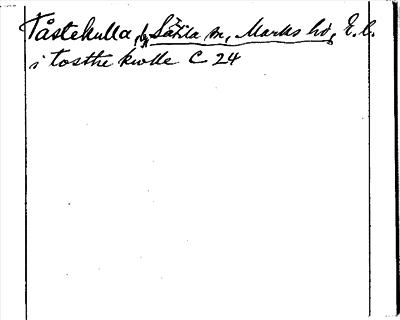 Tåstekulla, Sätila sn, Marks hd, E.l.
i tosthe kwlle C 24